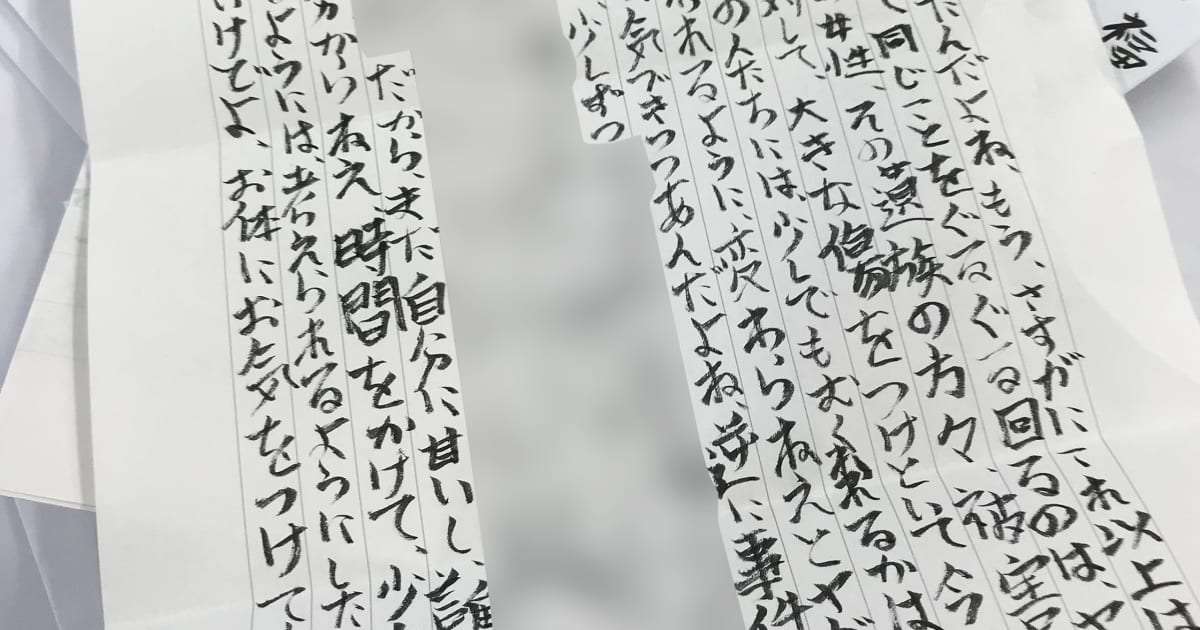 たんだよね、もう、さすがにこれ以上は
て同じことをぐるぐる回るのは、ヤ
女性、その遺族の方々、被害
対して、大きな傷をつけといて今
の人たちには、少しでもむくわれるかは
われるように、変わらねえとヤバ
気づきつつあんだよね、逆に事件
少しずつ
だから、まだ自分に甘いし、誰
かいねえ、時間をかけて、少
ようには、考えられるようにした
いけどよ、お体にお気をつけて